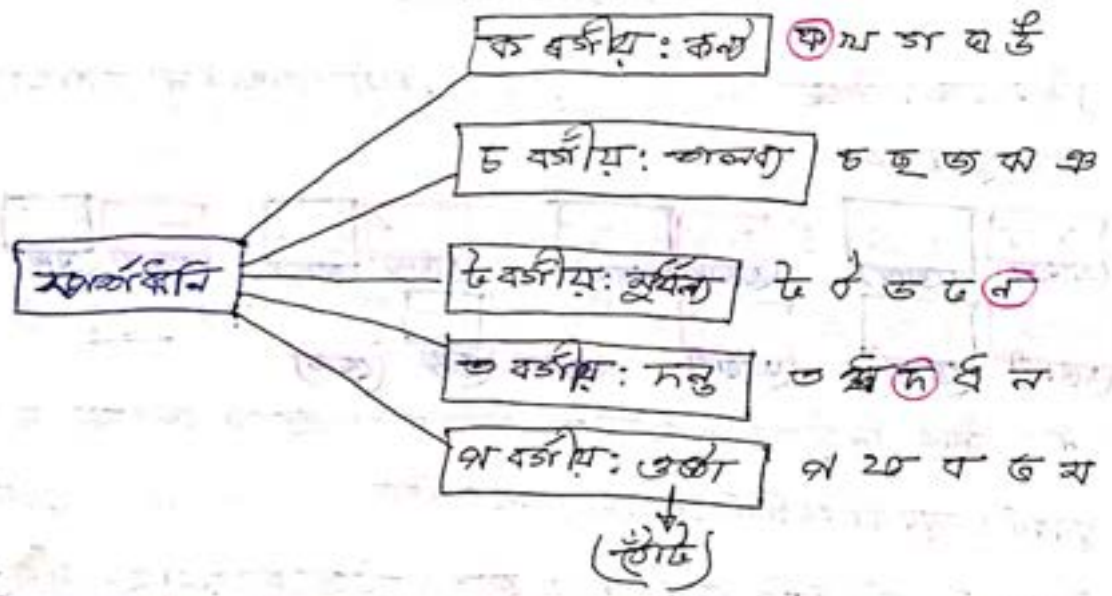 ক বর্গীয়: কন্ঠ ক খ গ ঘ ঙ
চ বর্গীয়: তালব্য চ ছ জ ঝ ঞ
স্পর্শধ্বনি
ট বর্গীয়: মূর্ধন্য ট ঠ ড ঢ ন
ত বর্গীয়: দন্ত ত থ দ ধ ন
প বর্গীয়: ওষ্ঠ্য প ফ ব ভ ম
(ঠোঁট)